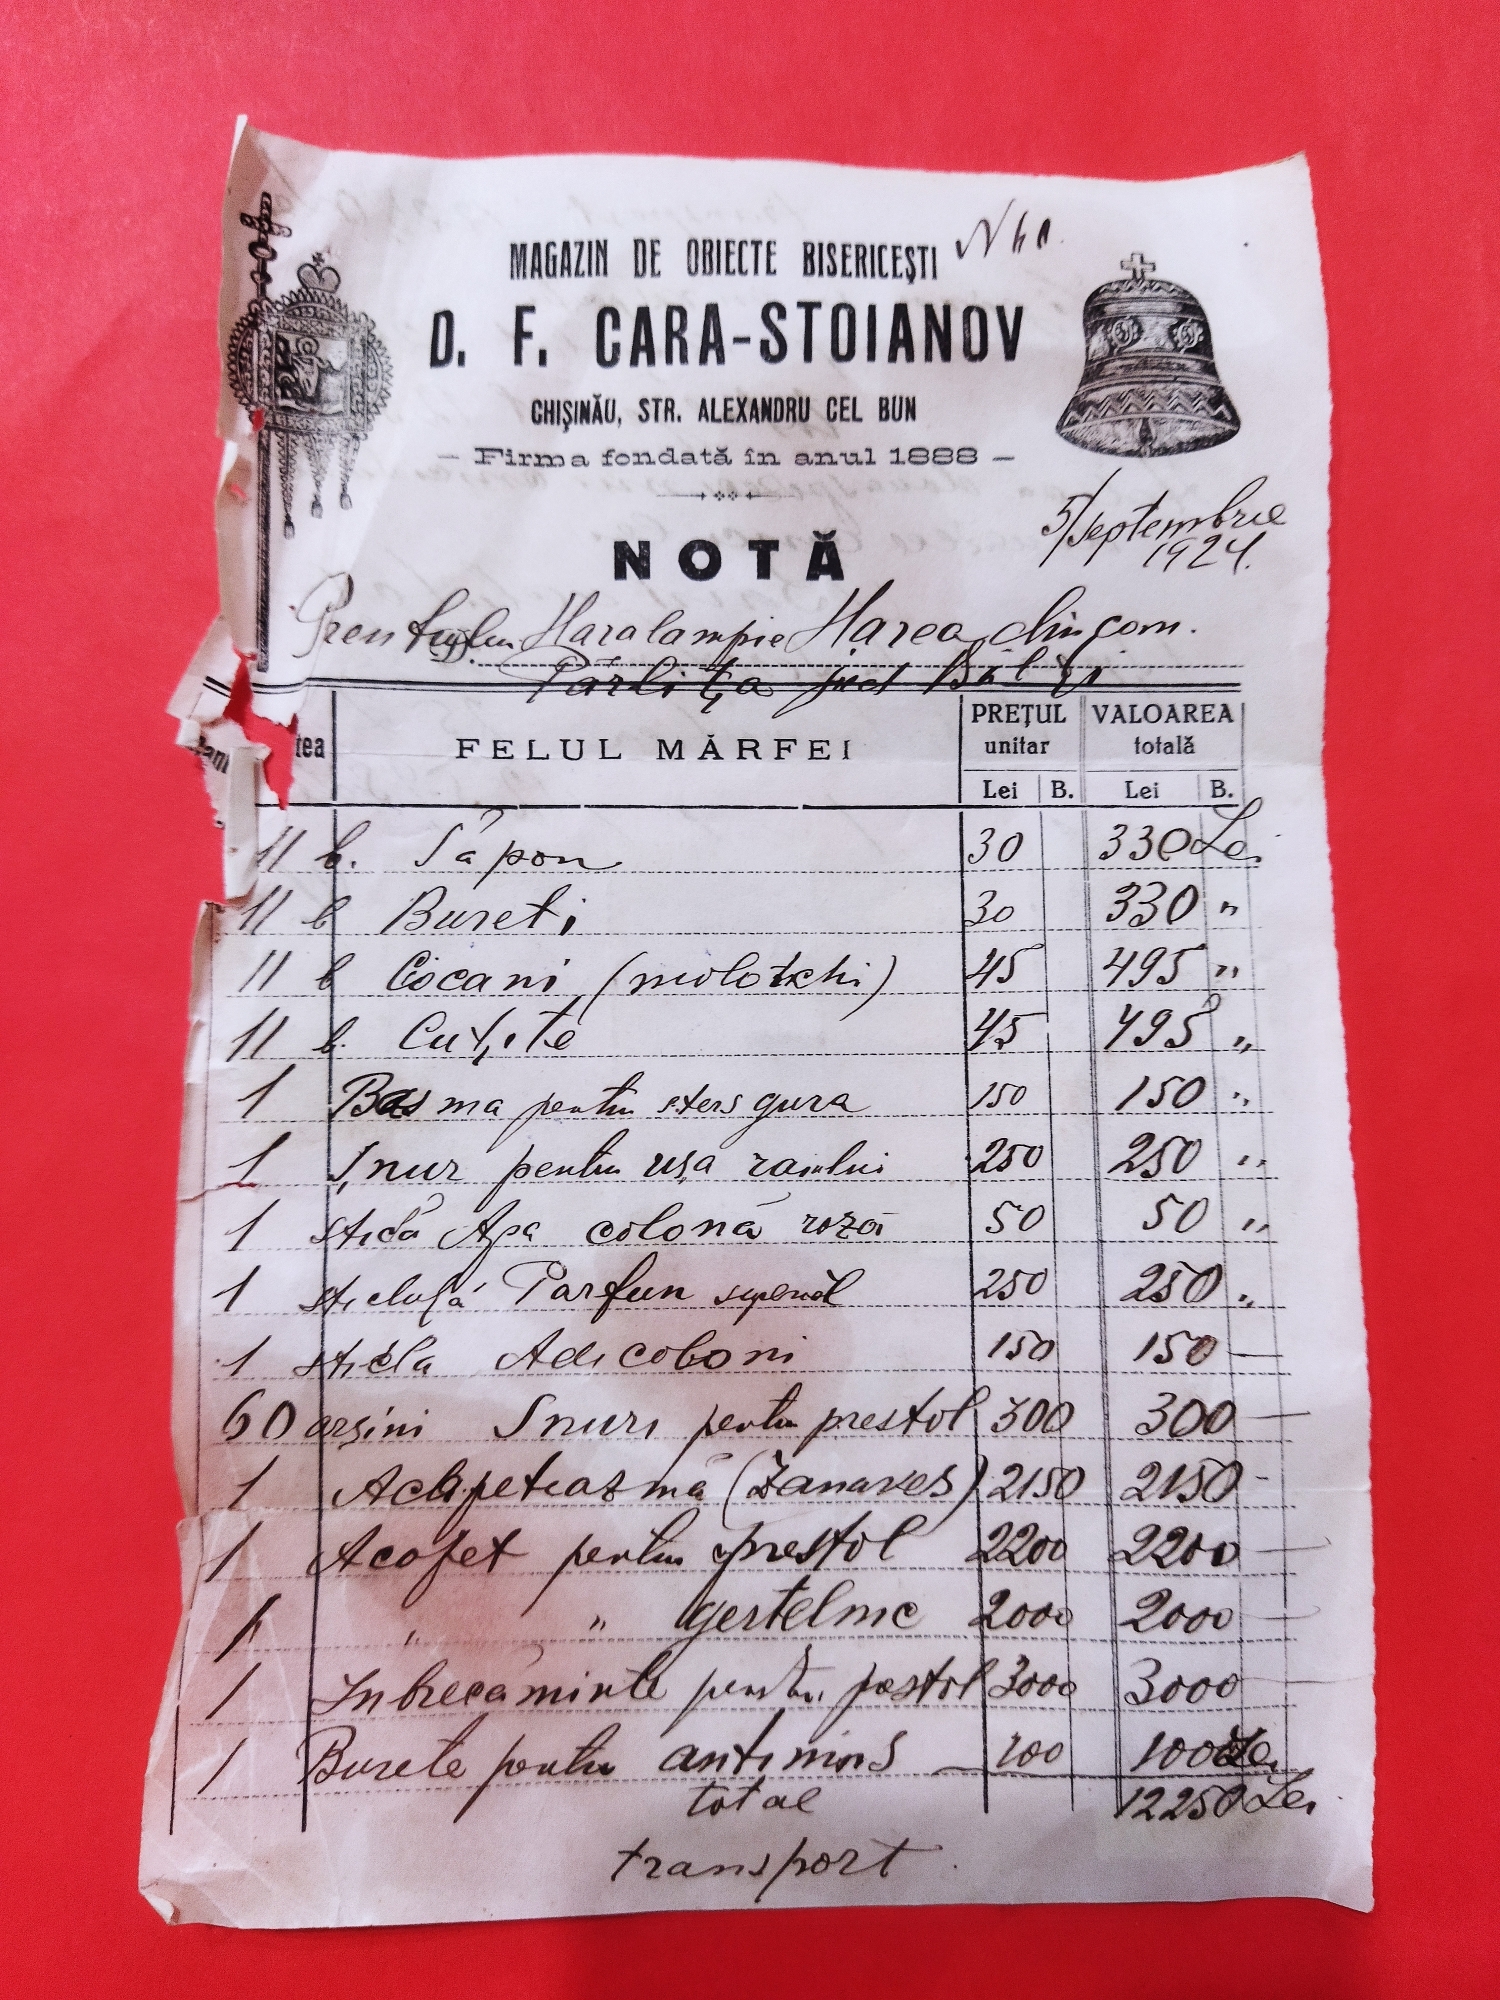 MAGAZIN DE OBIECTE BISERICEȘTI
D. F. CARA-STOIANOV
CHIȘINĂU, STR. ALEXANDRU CEL BUN
— Firma fondată în anul 1888 —
5/septembrie
1924.
NOTĂ
Haralampie Harea din com.
Pârlița jud Bălți
tea FELUL MĂRFEI PREȚUL unitar VALOAREA totală
Lei B. Lei B.
11 b. Săpon 30 330 Lei
11 b Bureti 30 330 "
11 b Ciocani (molotchi) 45 495 "
11 b. Cuțite 45 495 "
1 Basma pentru sters gura 150 150 "
1 Șnur pentru ușa raiului 250 250 "
1 sticlă Apa colonă roză 50 50 "
1 sticluță Parfun 250 250 "
1 sticla Adicoloni 150 150 —
60 arșini Snuri pentru prestol 300 300 —
1 (Zanaves) 2150 2150 -
1 Acopet pentru prestol 2200 2200 —
1 " " gertelnic 2000 2000 —
1 Inbrecăminte pentru prestol 3000 3000 —
1 Burete pentru antimins 100 100 Lei
total 12250 Lei
transport